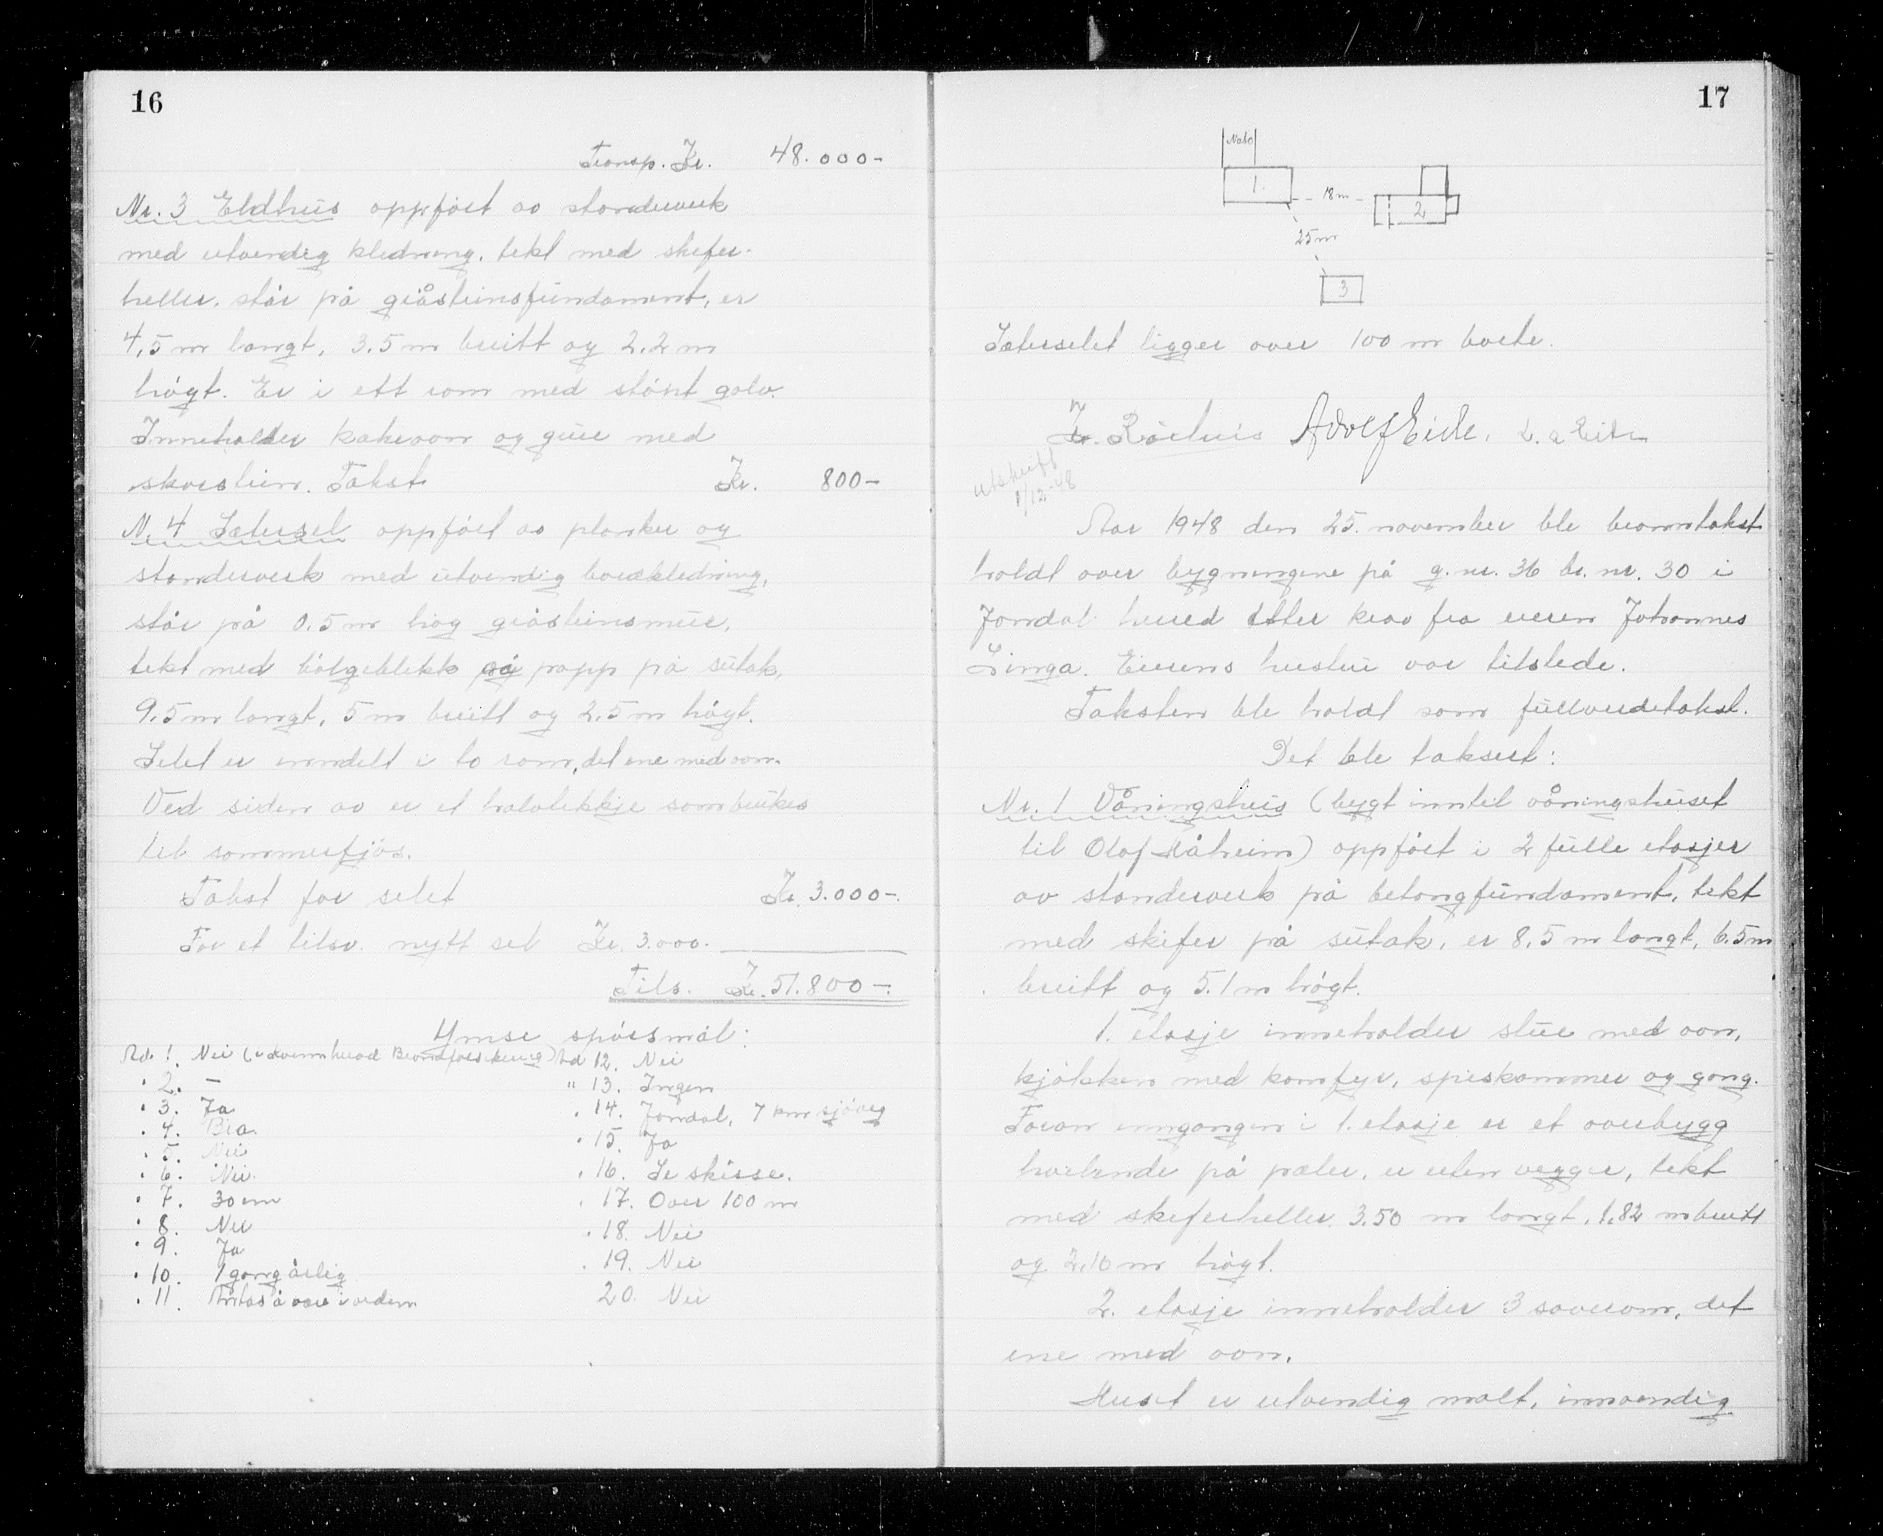 16
Transp. Kr. 48.000-
Nr. 3 Eldhus oppført av standerverk
med utvendig kledning, tekt med skifer-
heller, står på gråsteinsfundament, er
4,5 m langt, 3.5 m breitt og 2.2 m
høgt. Er i ett rom med støpt golv.
Inneholder bakerovn og grue med
skorstein. Takst Kr. 800-
N. 4 Sætersel oppført av planker og
standerverk med utvendig bordkledning,
står på 0.5 m høg gråsteinsmur,
tekt med bølgeblekk på papp på sutak,
9.5 m langt, 5 m breitt og 2.5 m høgt.
Selet er inndelt i to rom, det ene med ovn.
Ved siden av er et halvtekkje som brukes
til sommerfjøs.
Takst for selet Kr. 3.000-.
For et tilsv. nytt sel Kr. 3.000.
Tils. Kr. 51.800-.
Ymse spørsmål:
Ad. 1. Nei (udvenn herad Brandforsikring)
" 2. -
" 3. Ja
" 4. Bra.
" 5. Nei
" 6. Nei.
" 7. 30 cm
" 8. Nei
" 9. Ja
" 10. 1 gang årlig
" 11. Antas å være i orden
Ad 12. Nei
" 13. Ingen
" 14. Jondal, 7 km sjøveg
" 15. Ja
" 16. Se skisse.
" 17. Over 100 m
" 18. Nei
" 19. Nei
20. Nei
17
Nabo
1.
18 m
2
25 m
3
Sæterselet ligger over 100 m borte.
Adolf Eide.
Utskrift
1/12-48
Aar 1948 den 25. november ble branntakst
holdt over bygningene på g. nr. 36 br. nr. 30 i
Jondal herred etter krav fra eieren Johannes
Linga. Eierens hustru var tilstede.
Taksten ble holdt som fullverdetakst.
Det ble taksert:
Nr. 1 Våningshus (bygt inntil våningshuset
til Olaf Håheim) oppført i 2 fulle etasjer
av standerverk på betongfundament, tekt
med skifer på sutak, er 8.5 m langt, 6.5 m
breitt og 5.1 m høgt.
1. etasje inneholder stue med ovn,
kjøkken med komfyr, spiskammer og gang.
Foran inngangen i 1. etasje er et overbygg
hvilende på pæler, er uten vegger, tekt
med skiferheller. 3.50 m langt, 1.82 m breitt
og 2.10 m høgt.
2. etasje inneholder 3 soverom, det
ene med ovn.
Huset er utvendig malt, innvendig